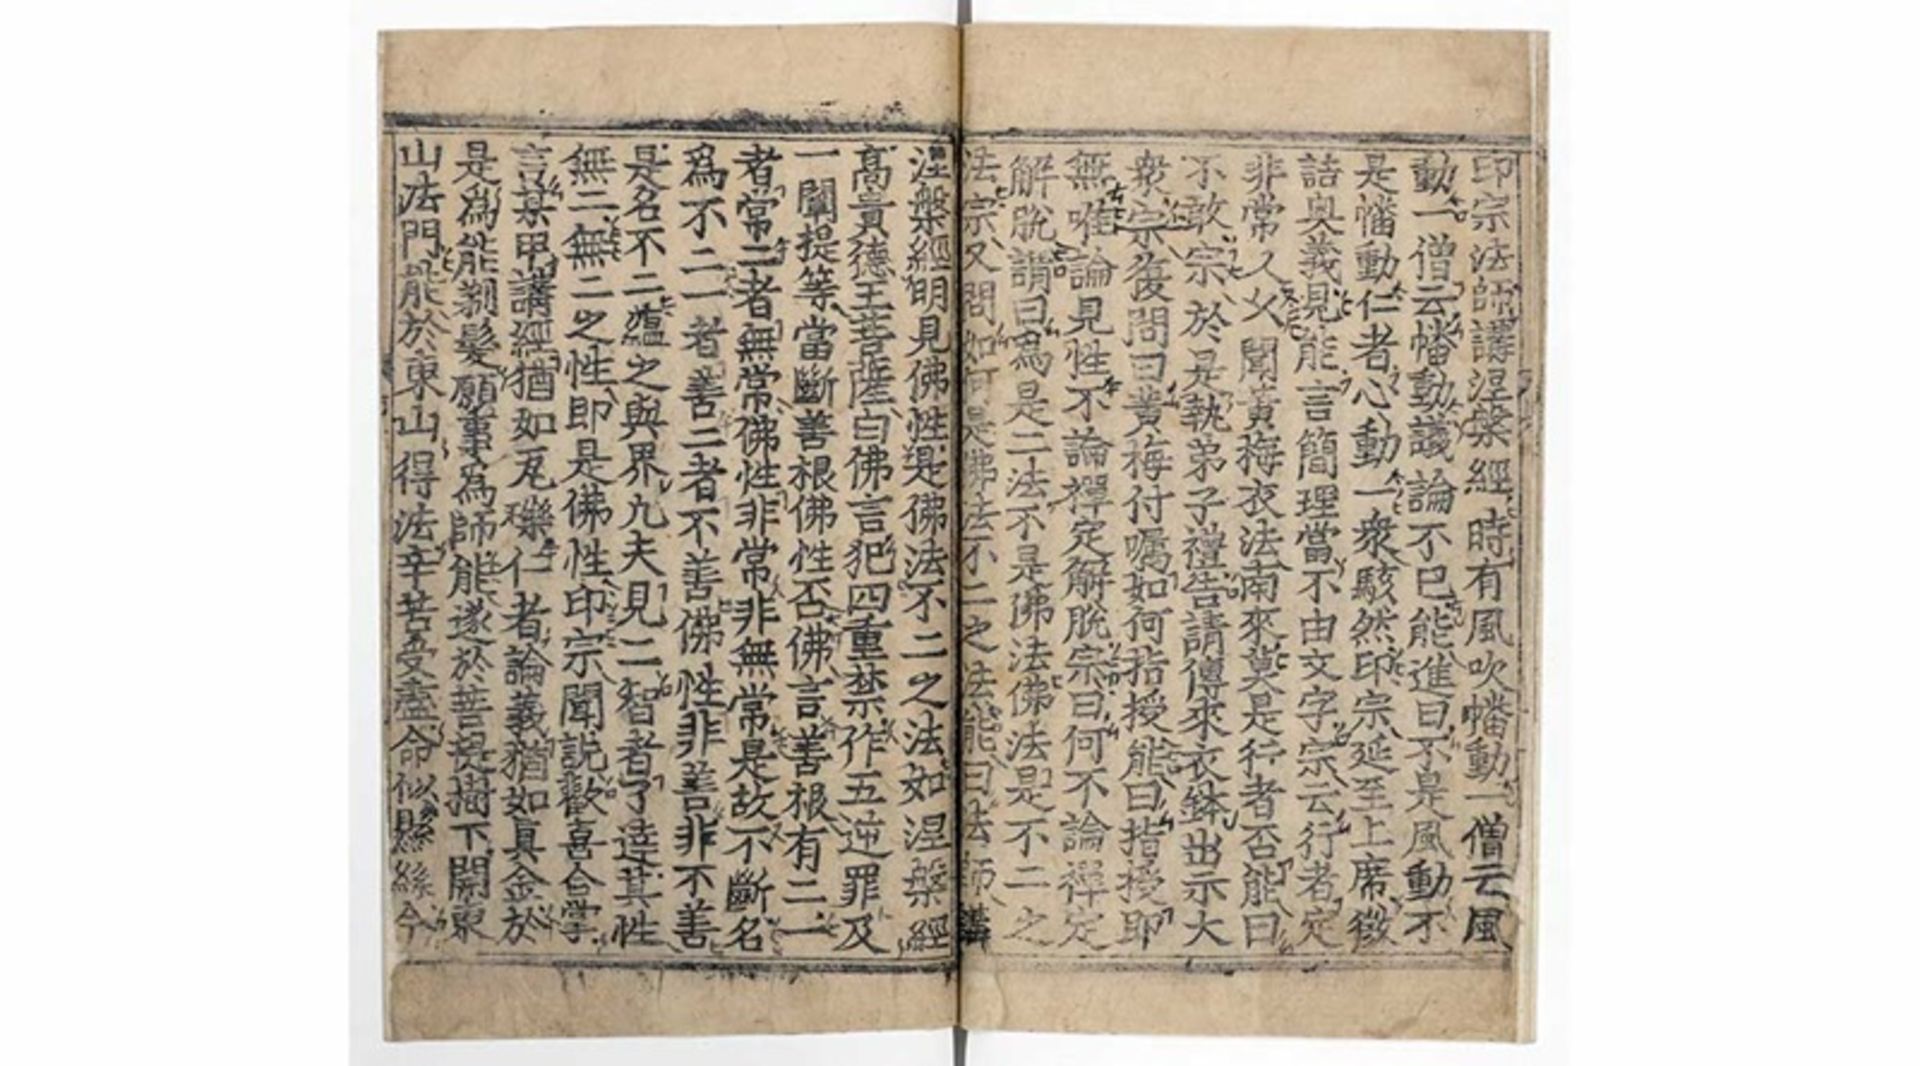 印宗法師講涅槃經時有風吹幡動一僧云風
動一僧云幡動議論不已能進曰不是風動不
是幡動仁者心動一衆駭然印宗延至上席徵
詰奥義見能言簡理當不由文字宗云行者定
非常人久聞黄梅衣法南來莫是行者否能曰
不敢宗於是執弟子禮告請傳來衣鉢出示大
衆宗復問曰黄梅付囑如何指授能曰指授即
無唯論見性不論禪定解脫宗曰何不論禪定
解脫謂曰爲是二法不是佛法佛法是不二之
法宗又問如何是佛法不二之法能曰法師講
涅槃經明見佛性是佛法不二之法如涅槃經
高貴德王菩薩白佛言犯四重禁作五逆罪及
一闡提等當斷善根佛性否佛言善根有二一
者常二者無常佛性非常非無常是故不斷名
爲不二一者善二者不善佛性非善非不善
是名不二蘊之與界凡夫見二智者了達其性
無二無二之性即是佛性印宗聞說歡喜合掌
言某甲講經猶如瓦礫仁者論義猶如真金於
是爲能剃髮願事爲師能遂於菩提樹下開東
山法門能於東山得法辛苦受盡命似懸絲今